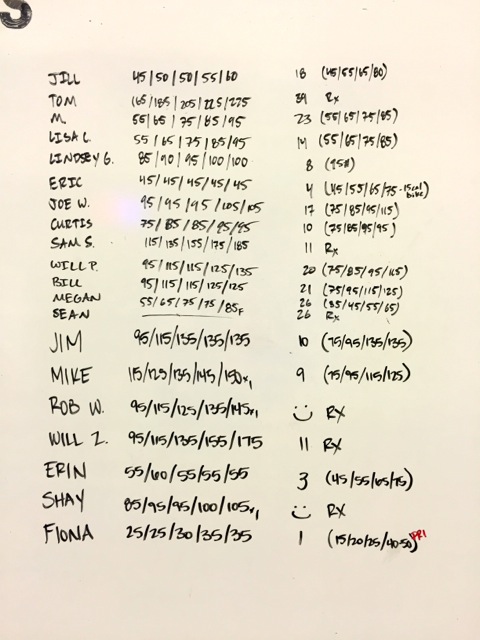 S
JILL 45/50/50/55/60 18 (45/55/65/80)
TOM 165/185/205/225/275 39 Rx
M. 55/65/75/85/95 23 (55/65/75/85)
LISA C. 55/65/75/85/95 14 (55/65/75/85)
LINDSEY G. 85/90/95/100/100 8 (95#)
ERIC 45/45/45/45/45 4 (45/55/65/75-15cal bike)
JOE W. 95/95/95/105/105 17 (75/85/95/115)
CURTIS 75/85/85/95/95 10 (75/85/95/95)
SAM S. 115/135/155/175/185 11 Rx
WILL P. 95/115/115/125/135 20 (75/85/95/115)
BILL 95/115/115/125/125 21 (75/95/115/125)
MEGAN 55/65/75/75/85F 26 (35/45/55/65)
SEAN 26 Rx
JIM 95/115/135/135/135 10 (75/95/135/135)
MIKE 115/125/135/145/150x1 9 (75/95/115/125)
ROB W. 95/115/125/135/145x1 RX
WILL Z. 95/115/135/155/175 11 RX
ERIN 55/60/55/55/55 3 (45/55/65/75)
SHAY 85/95/95/100/105x1 RX
FIONA 25/25/30/35/35 1 (15/20/25/40-50) PR!